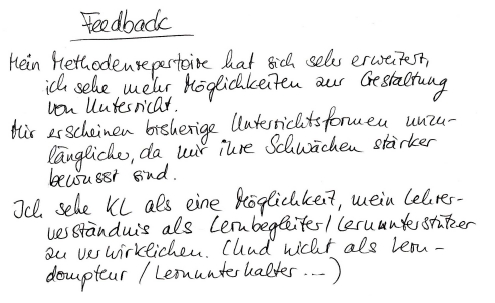 Feedback
Mein Methodenrepertoire hat sich sehr erweitert,
ich sehe mehr Möglichkeiten zur Gestaltung
von Unterricht.
Mir erscheinen bisherige Unterrichtsformen unzu-
länglicher, da mir ihre Schwächen stärker
bewusst sind.
Ich sehe KL als eine Möglichkeit, mein Lehrer-
verständnis als Lernbegleiter/Lernunterstützer
zu verwirklichen. (Und nicht als Lern-
dompteur / Lernunterhalter ...)